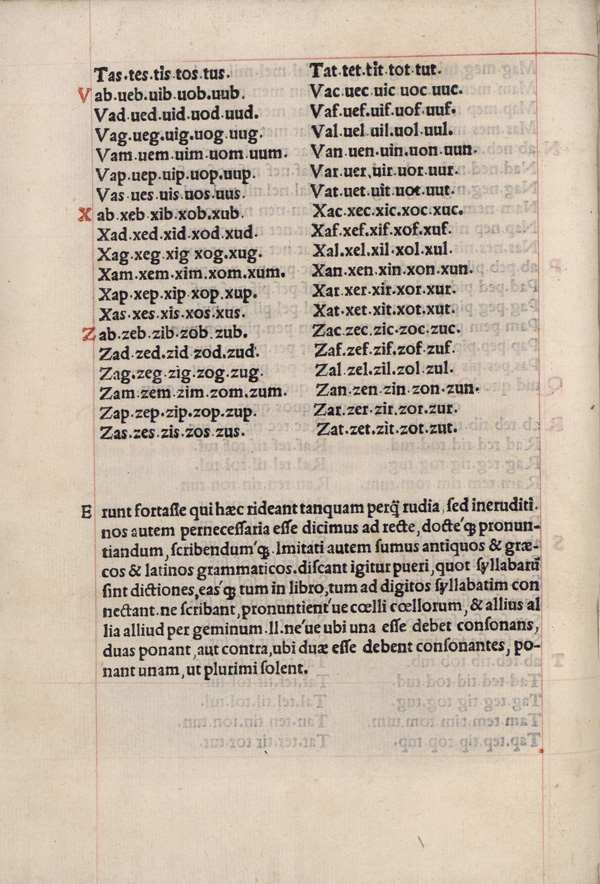 Tas.tes.tis tos.tus.
Vab.ueb.uib uob.uub.
Vad.ued.uid.uod.uud.
Vag.ueg.uig.uog.uug.
Vam.uem.uim.uom.uum.
Vap.uep.uip.uop.uup.
Vas.ues.uis.uos.uus.
Xab.xeb.xib.xob.xub.
Xad.xed.xid.xod.xud.
Xag.xeg.xig.xog.xug.
Xam.xem.xim.xom.xum.
Xap.xep.xip.xop.xup.
Xas.xes.xis.xos.xus.
Zab.zeb.zib.zob.zub.
Zad.zed.zid.zod.zud.
Zag.zeg.zig.zog.zug.
Zam.zem.zim.zom.zum.
Zap.zep.zip.zop.zup.
Zas.zes.zis.zos.zus.
Tat.tet.tit.tot.tut.
Vac.uec.uic.uoc.uuc.
Vaf.uef.uif.uof.uuf.
Val.uel.uil.uol.uul.
Van.uen.uin.uon.uun.
Var.uer.uir.uor.uur.
Vat.uet.uit.uot.uut.
Xac.xec.xic.xoc.xuc.
Xaf.xef.xif.xof.xuf.
Xal.xel.xil.xol.xul.
Xan.xen.xin.xon.xun.
Xar.xer.xir.xor.xur.
Xat.xet.xit.xot.xut.
Zac.zec.zic.zoc.zuc.
Zaf.zef.zif.zof.zuf.
Zal.zel.zil.zol.zul.
Zan.zen.zin.zon.zun.
Zar.zer.zir.zor.zur.
Zat.zet.zit.zot.zut.
Erunt fortasse qui hæc rideant tanquam perq̃ rudia, sed ineruditi.
nos autem pernecessaria esse dicimus ad recte, docte'qꝫ pronun-
tiandum, scribendum'qꝫ. Imitati autem sumus antiquos & græ-
cos & latinos grammaticos. discant igitur pueri, quot syllabarū
sint dictiones, eas'qꝫ tum in libro, tum ad digitos syllabatim con
nectant. ne scribant, pronuntient'ue cœlli cœllorum, & allius al
lia alliud per geminum .ll. ne'ue ubi una esse debet consonans,
duas ponant, aut contra, ubi duæ esse debent consonantes, po-
nant unam, ut plurimi solent.